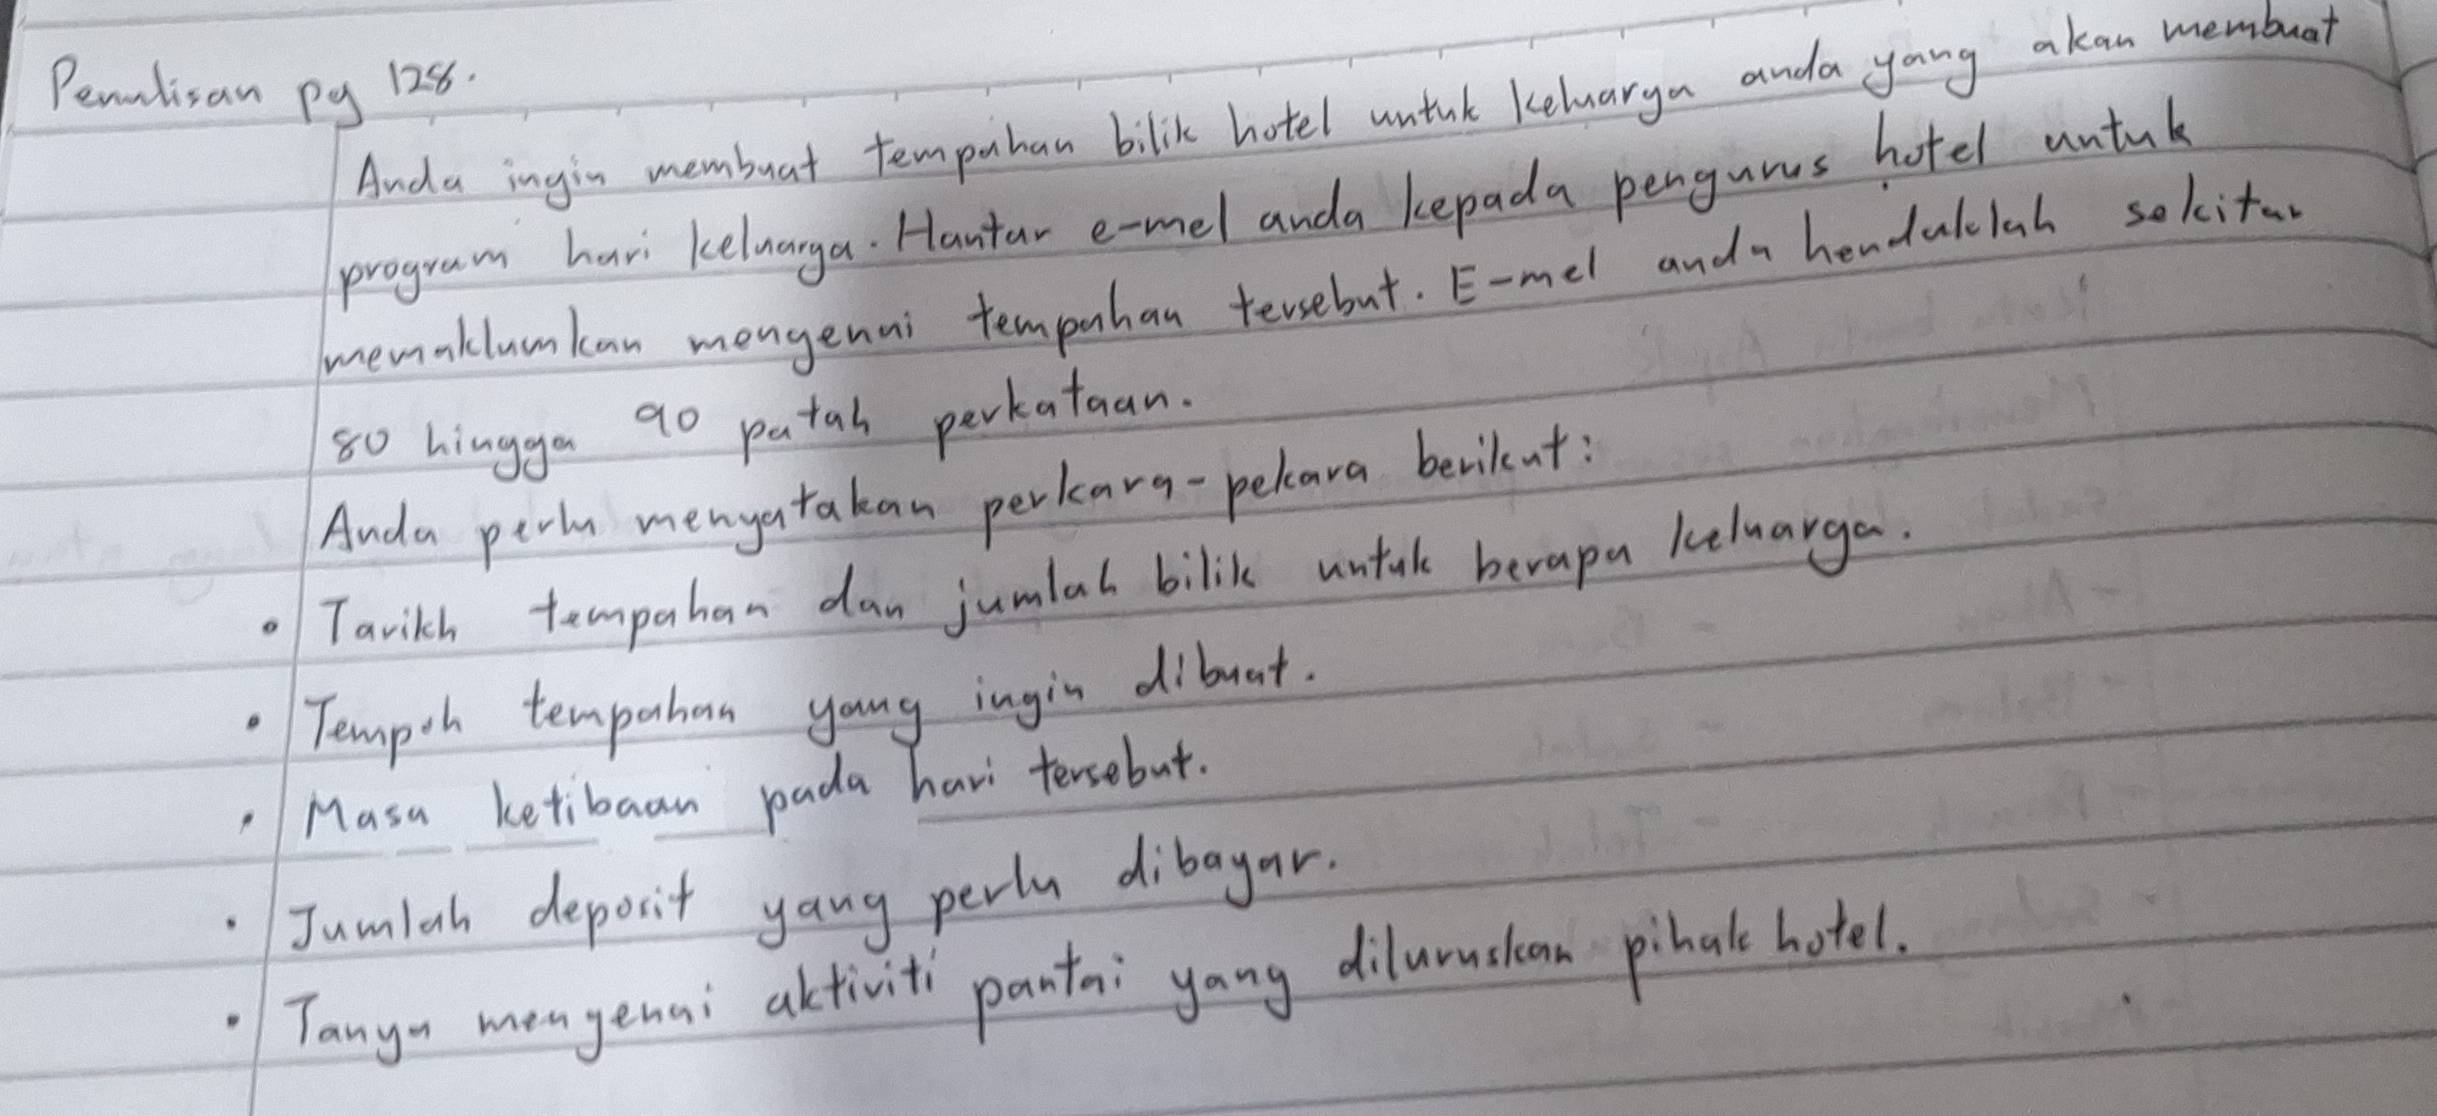 Penulisan pg 128.
Anda ingin membuat tempahan bilik hotel untuk keluarga anda yang akan membuat
program hari keluarga. Hantar e-mel anda kepada pengurus hotel untuk
memaklumkan mengenai tempahan tersebut. E-mel anda hendaklah sekitar
80 hingga 90 patah perkataan.
Anda perlu menyatakan perkara-pekara berikut:
• Tarikh tempahan dan jumlah bilik untuk berapa keluarga.
• Tempoh tempahan yang ingin dibuat.
• Masa ketibaan pada hari tersebut.
• Jumlah deposit yang perlu dibayar.
• Tanya mengenai aktiviti pantai yang diluruskan pihak hotel.